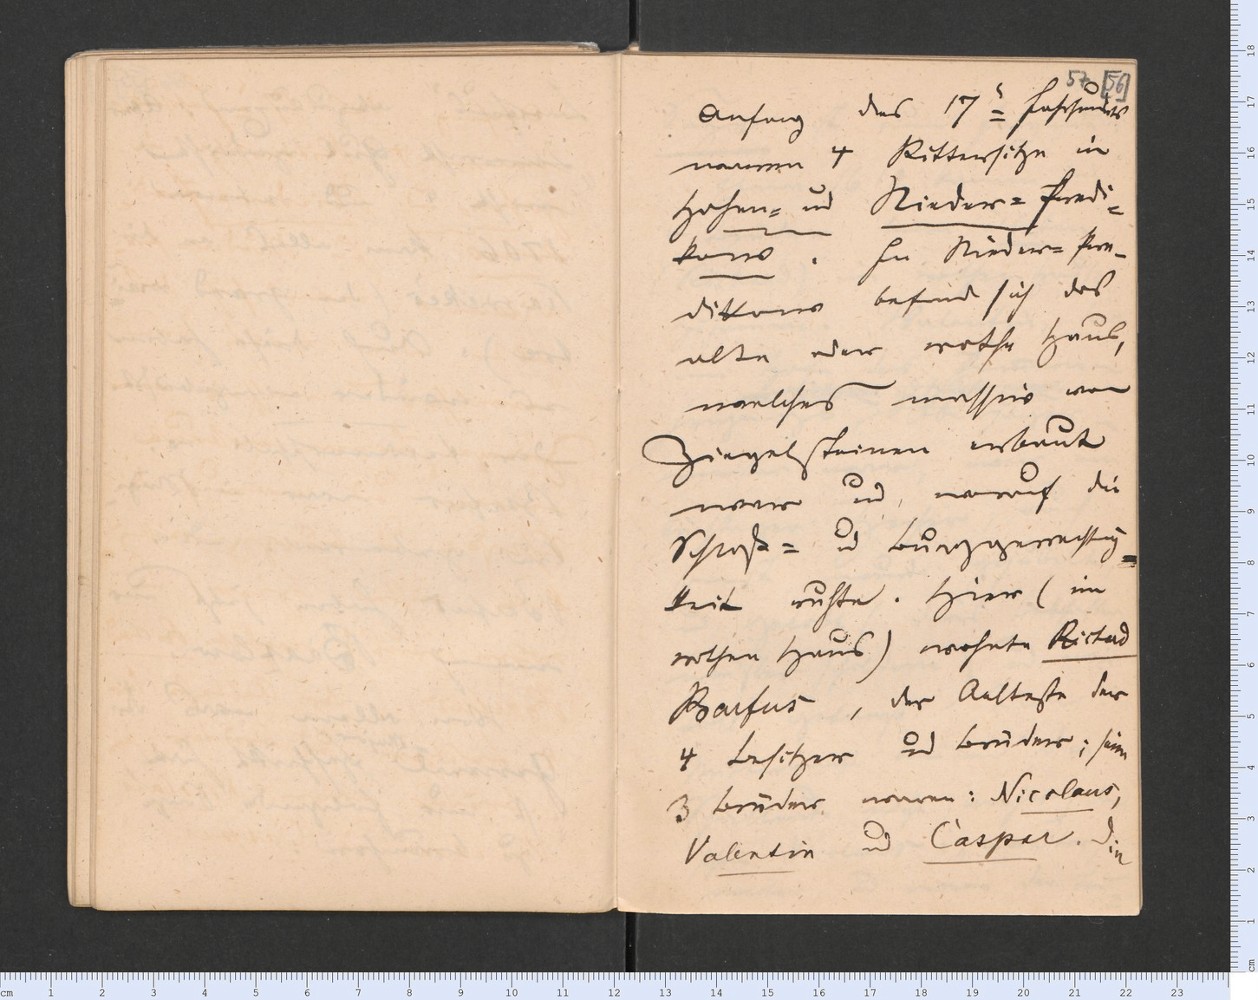 57 [56]
Anfang des 17t Jahrhunderts
waren 4 Rittersitze in
Hohen= und Nieder= Predi=
kow. In Nieder= Pre-
dikow befand sich das
alte oder rothe Haus,
welches massiv von
Ziegelsteinen erbaut
war und worauf die
Schloß= und Burggerechtig=
keit ruhte. Hier (im
rothen Haus) wohnte Richard
Barfus, der Aelteste der
4 Besitzer und Brüder; seine
3 Brüder waren: Nicolaus,
Valentin und Caspar. Die